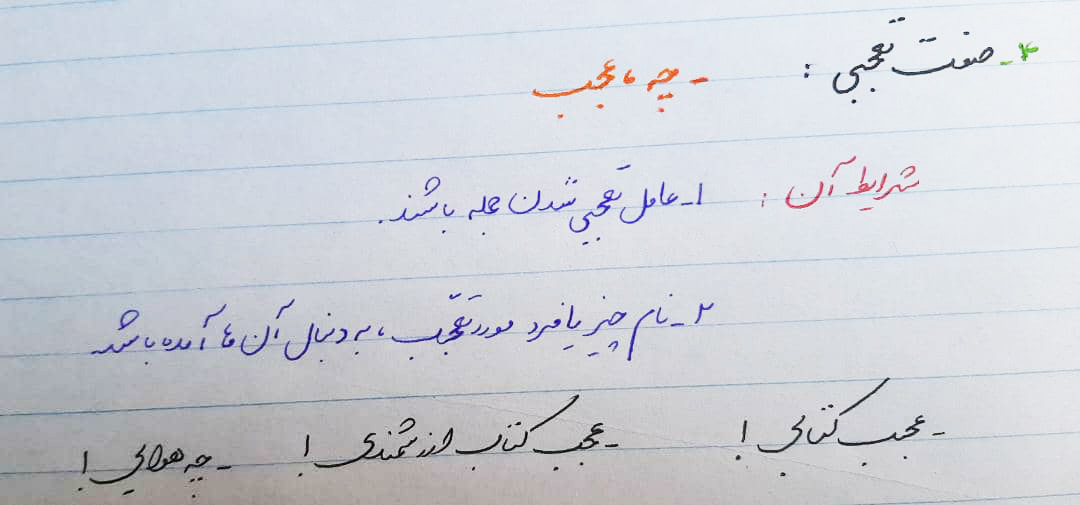 ۴- صفت تعجبی : - چه ، عجب
شرایط آن : ۱- عامل تعجبی شدن جمله باشند.
۲- نام چیز یا فرد مورد تعجّب ، به دنبال آن ها آمده باشد
- عجب کتابی ! - عجب کتاب ارزشمندی ! - چه هوایی !